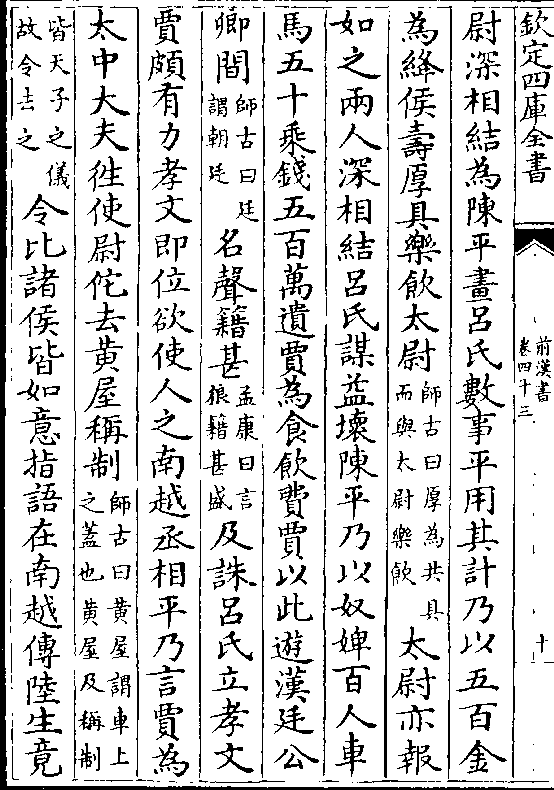 欽定四庫全書
前漢書
卷四十三
十
尉深相結為陳平畫呂氏數事平用其計乃以五百金
為絳侯壽厚具樂飲太尉師古曰厚為共具而與太尉樂飲太尉亦報
如之兩人深相結呂氏謀益壞陳平乃以奴婢百人車
馬五十乘錢五百萬遺賈為食飲費賈以此遊漢廷公
卿間師古曰廷謂朝廷名聲籍甚孟康曰言狼籍甚盛及誅呂氏立孝文
賈頗有力孝文即位欲使人之南越丞相平乃言賈為
太中大夫徃使尉佗去黄屋稱制師古曰黄屋謂車上之蓋也黄屋及稱制
皆天子之儀故令去之令比諸侯皆如意指語在南越傳陸生竟